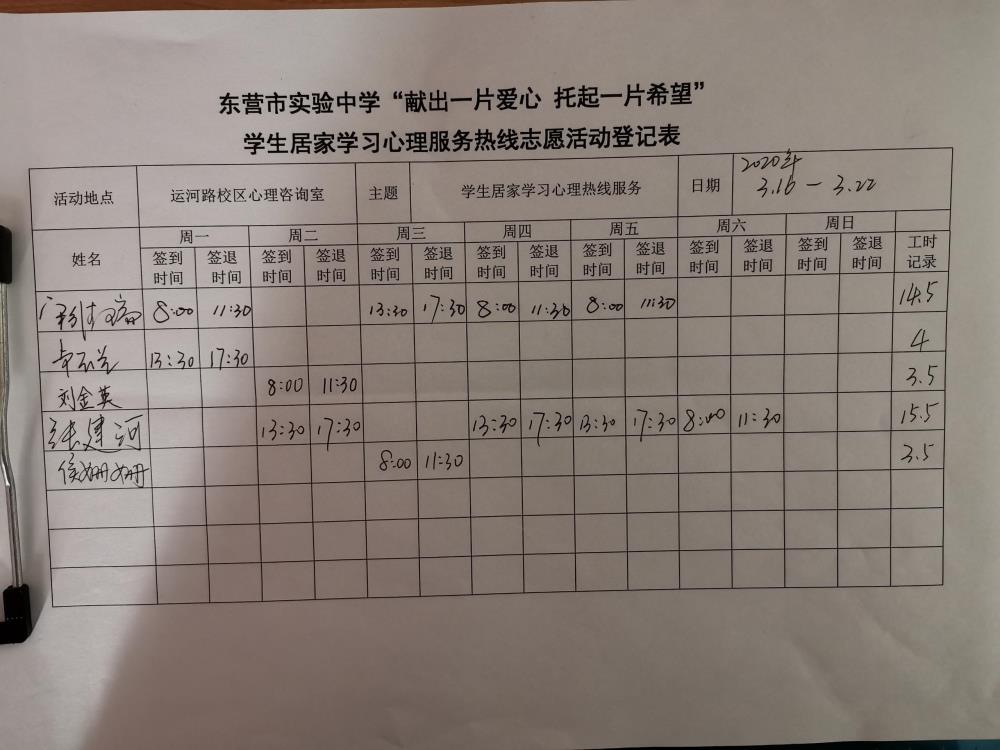 东营市实验中学“献出一片爱心 托起一片希望”
学生居家学习心理服务热线志愿活动登记表
活动地点 运河路校区心理咨询室 主题 学生居家学习心理热线服务 日期 2020年
3.16 — 3.22
姓名 周一 周二 周三 周四 周五 周六 周日 工时记录
签到时间 签退时间 签到时间 签退时间 签到时间 签退时间 签到时间 签退时间 签到时间 签退时间 签到时间 签退时间 签到时间 签退时间
8:00 11:30 13:30 17:30 8:00 11:30 8:00 11:30 14.5
13:30 17:30 4
刘金英 8:00 11:30 3.5
张建河 13:30 17:30 13:30 17:30 13:30 17:30 8:00 11:30 15.5
侯姗姗 8:00 11:30 3.5